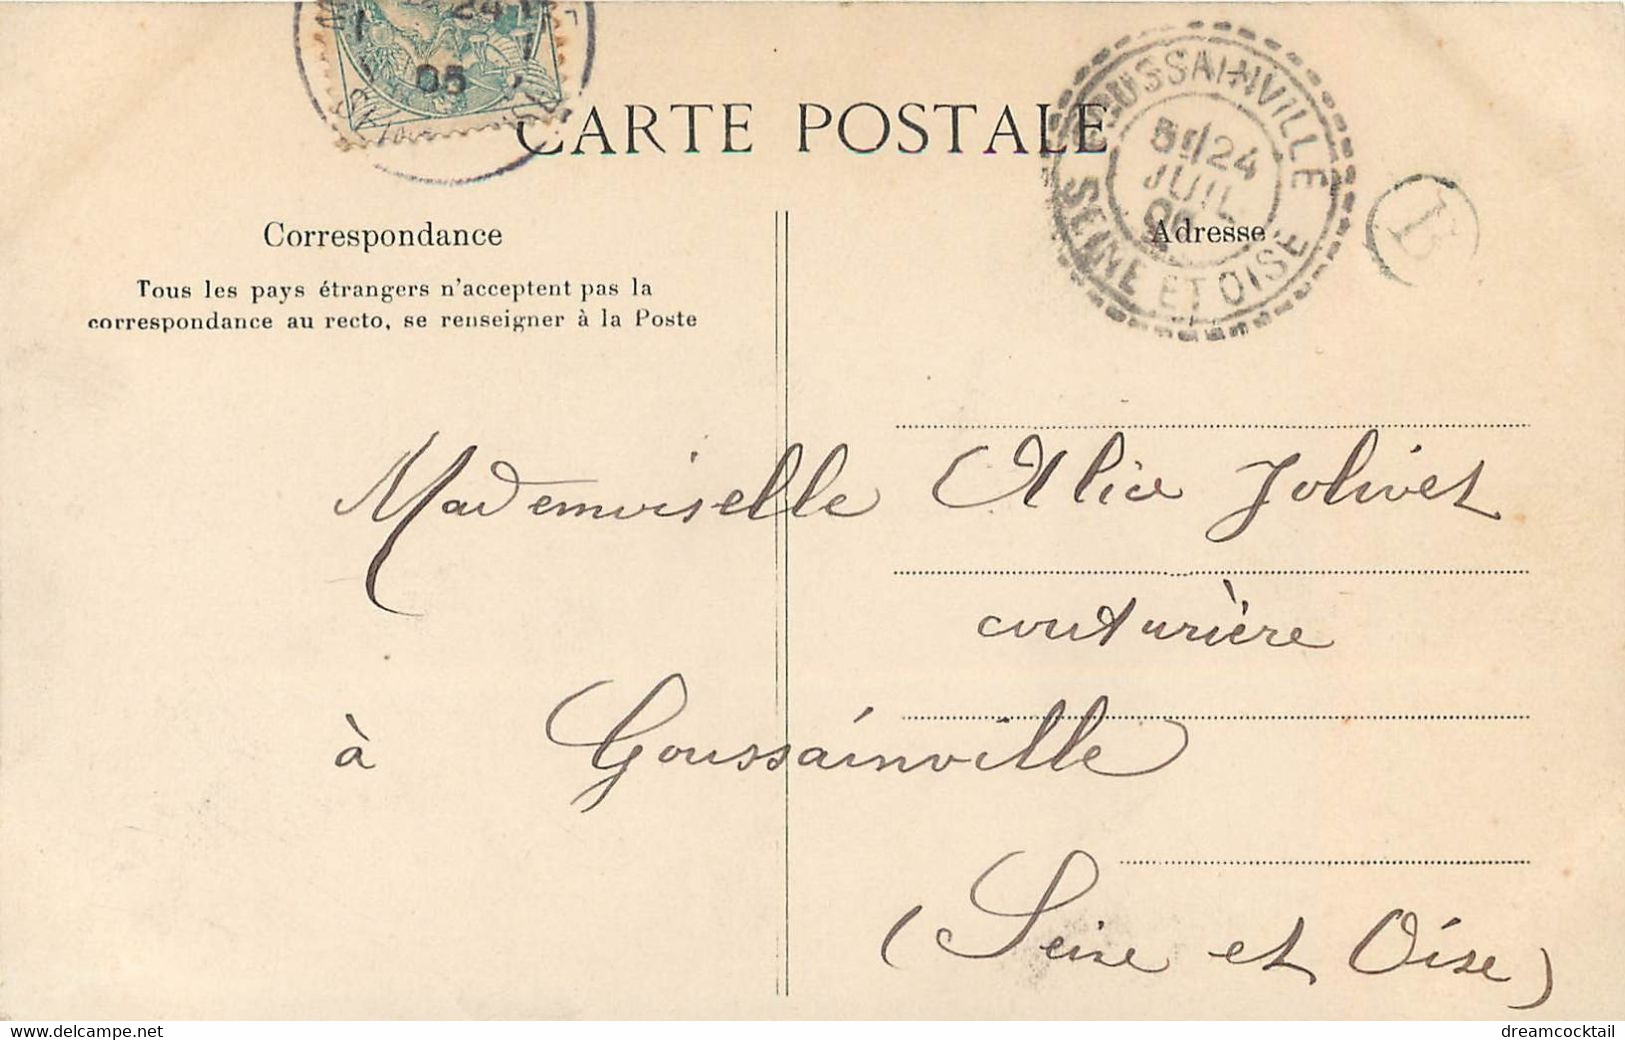 24
05
CARTE POSTALE
GOUSSAINVILLE
24
JUIL
SEINE ET OISE
Correspondance
Adresse
Tous les pays étrangers n'acceptent pas la
correspondance au recto, se renseigner à la Poste
Mademoiselle Alice Jolivet
couturière
à Goussainville
(Seine et Oise)
www.delcampe.net
dreamcocktail